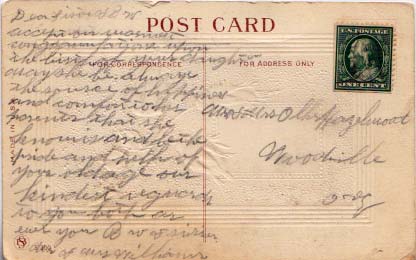 POST CARD
FOR CORRESPONDENCE
FOR ADDRESS ONLY
U.S. POSTAGE
ONE CENT
Dear friends
accept our warmest
congratulations upon
the birth of your daughter
may she be always
the source of happiness
and comfort to her
parents that she
knows and both
pride and help of
your old age our
kindest regards
to you both as
ever your
Williams
Mr & Mrs Ollie Hazelwood
Woodville
MADE IN